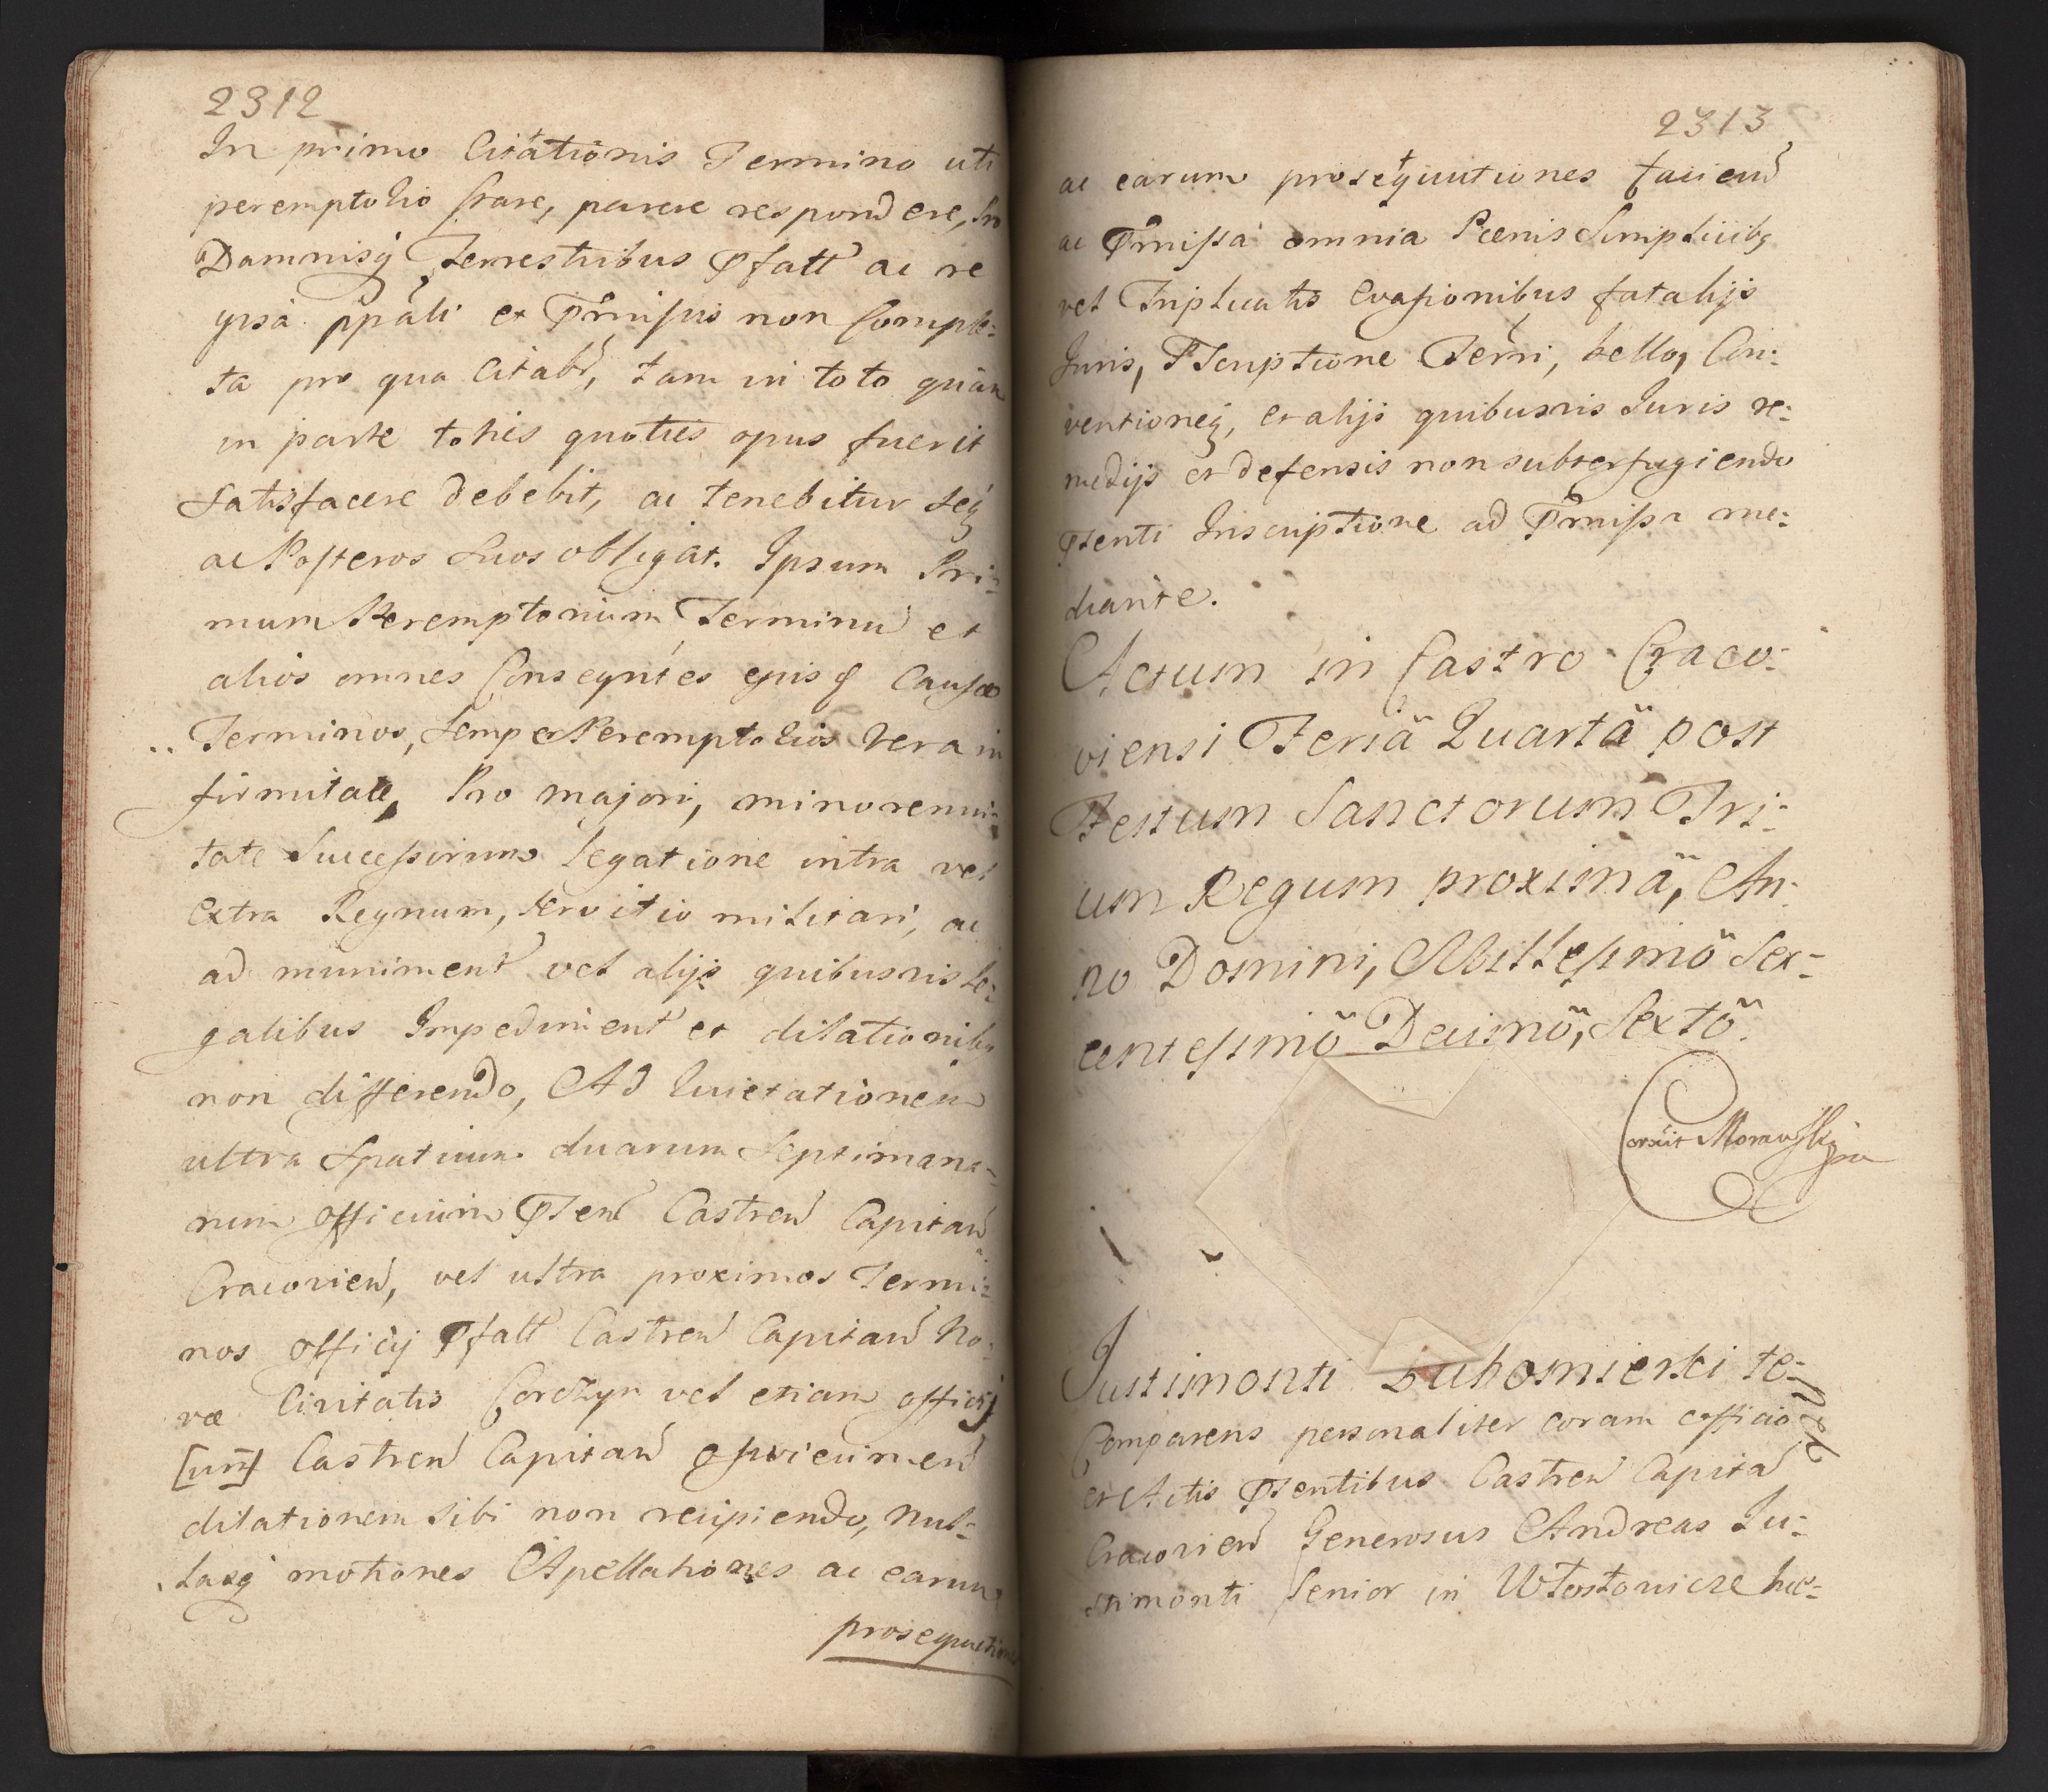 2312
In primo Citationis Termino uti
peremptorio stare, parere respondere, In
Damnisq Terrestribus Pfatt ac re
ipsa ppali et Prmissis non Comple:
ta pro qua Citabr, tam in toto quam
in parte toties quoties opus fuerit
satisfacere debebit, ac tenebitur seq
ac Posteros suos obligat. Ipsum Pri:
mum Peremptorium Terminu et
alios omnes Conseqntes ejusq Causæ
Terminos, semper Peremptorios Vera in
firmitate, Pro majori, minorenni:
tate Successorum legatione intra vel
Extra Regnum, servitio militari, ac
ad muniment vel alijs quibusvis Le:
galibus Impediment et dilationibq
non differendo, Ad Quietationem
ultra Spatium duarum Septimana:
rum officium Psen Castren Capitan
Cracovien, vel ultra proximos Termi:
nos officij Pfatt Castren Capitan No:
væ Civitatis Corczyn vel etiam officij
[un] Castren Capitan Osviecimen
dilationem sibi non recipiendo, Nul:
lasq motiones Apellationes ac earum
prosequutiones
2313
ac earum prosequutiones faciend
ac Prmissa omnia Pœnis Simplicibq
vel Triplicatis Evasionibus fatalijs
Juris, Pscriptione Terri, bello, Con:
ventioneq, et alijs quibusvis Juris re:
medijs et defensis non subterfugiendo
Psenti Inscriptione ad Prmissa me:
diante.
Actum in Castro Craco:
viensi Feriâ Quartâ post
Festum Sanctorum Tri:
um Regum proximâ, An:
no Domini, Millesimô Sex:
centesimô Decimô, Sextô.
Correxit Morawski mp
Justimonti Luhomierski te:
Comparens personaliter coram officio
et Actis Psentibus Castren Capita
Cracovien Generosus Andreas Ju:
stimonti Senior in Wtostowicze hæ: